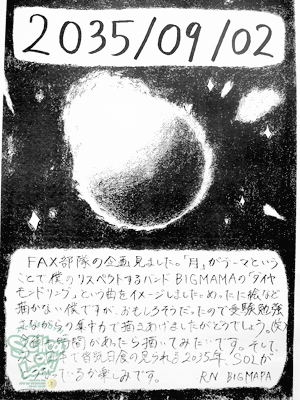 2035/09/02
FAX部隊の企画見ました。「月」がテーマという
ことで僕のリスペクトするバンドBIGMAMAの「ダイヤ
モンドリング」という曲をイメージしました。めったに絵など
描かない僕ですが、おもしろそうだったので受験勉強
さながらの集中力で描きあげましたがどうでしょう。(笑)
時間があったら描いてみたいです。そして、
皆既日食の見られる2035年、SOLが
いるか楽しみです。
RN BIGMAPA